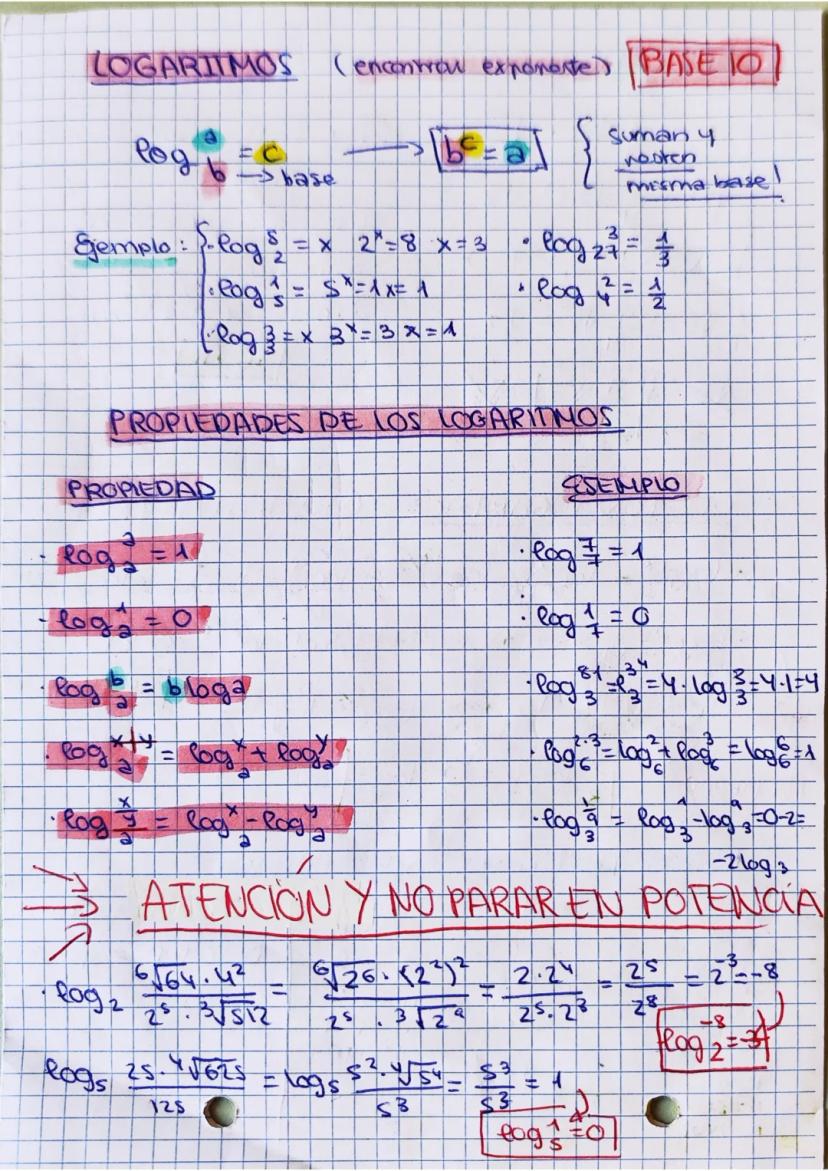 LOGARITMOS (encontrar exponente) BASE 10
log_b^a = c → b^c = a { suman y
b → base
misma base!
Ejemplo: { · log_2^8 = x 2^x = 8 x = 3 · log_27^3 = 1/3
· log_5^1 = 5^x = 1 x = 1 · log_4^2 = 1/2
· log_3^3 = x 3^x = 3 x = 1
PROPIEDADES DE LOS LOGARITMOS
PROPIEDAD EJEMPLO
· log_a^a = 1 · log_7^7 = 1
· log_a^1 = 0 · log_7^1 = 0
· log_a^b = b log a · log_3^81 = l_3^3^4 = 4 · log_3^3 = 4 · 1 = 4
· log_a^x+y = log_a^x + log_a^y · log_6^2·3 = log_6^2 + log_6^3 = log_6^6 = 1
· log_a^x/y = log_a^x - log_a^y · log_3^1/9 = log_3^1 - log_3^9 = 0 - 2 =
-2 log_3
ATENCIÓN Y NO PARAR EN POTENCIA
· log_2 (⁶√64 · 4^2)/(2^5 · ³√512) = (⁶√26 · (2^2)^2)/(2^5 · ³√2^9) = (2 · 2^4)/(2^5 · 2^3) = 2^5/2^8 = 2^-3 = -8
log_2^-8 = -3
log_5 (25 · ⁴√625)/125 = log_5 (5^2 · ⁴√5^4)/5^3 = 5^3/5^3 = 1
log_5^1 = 0